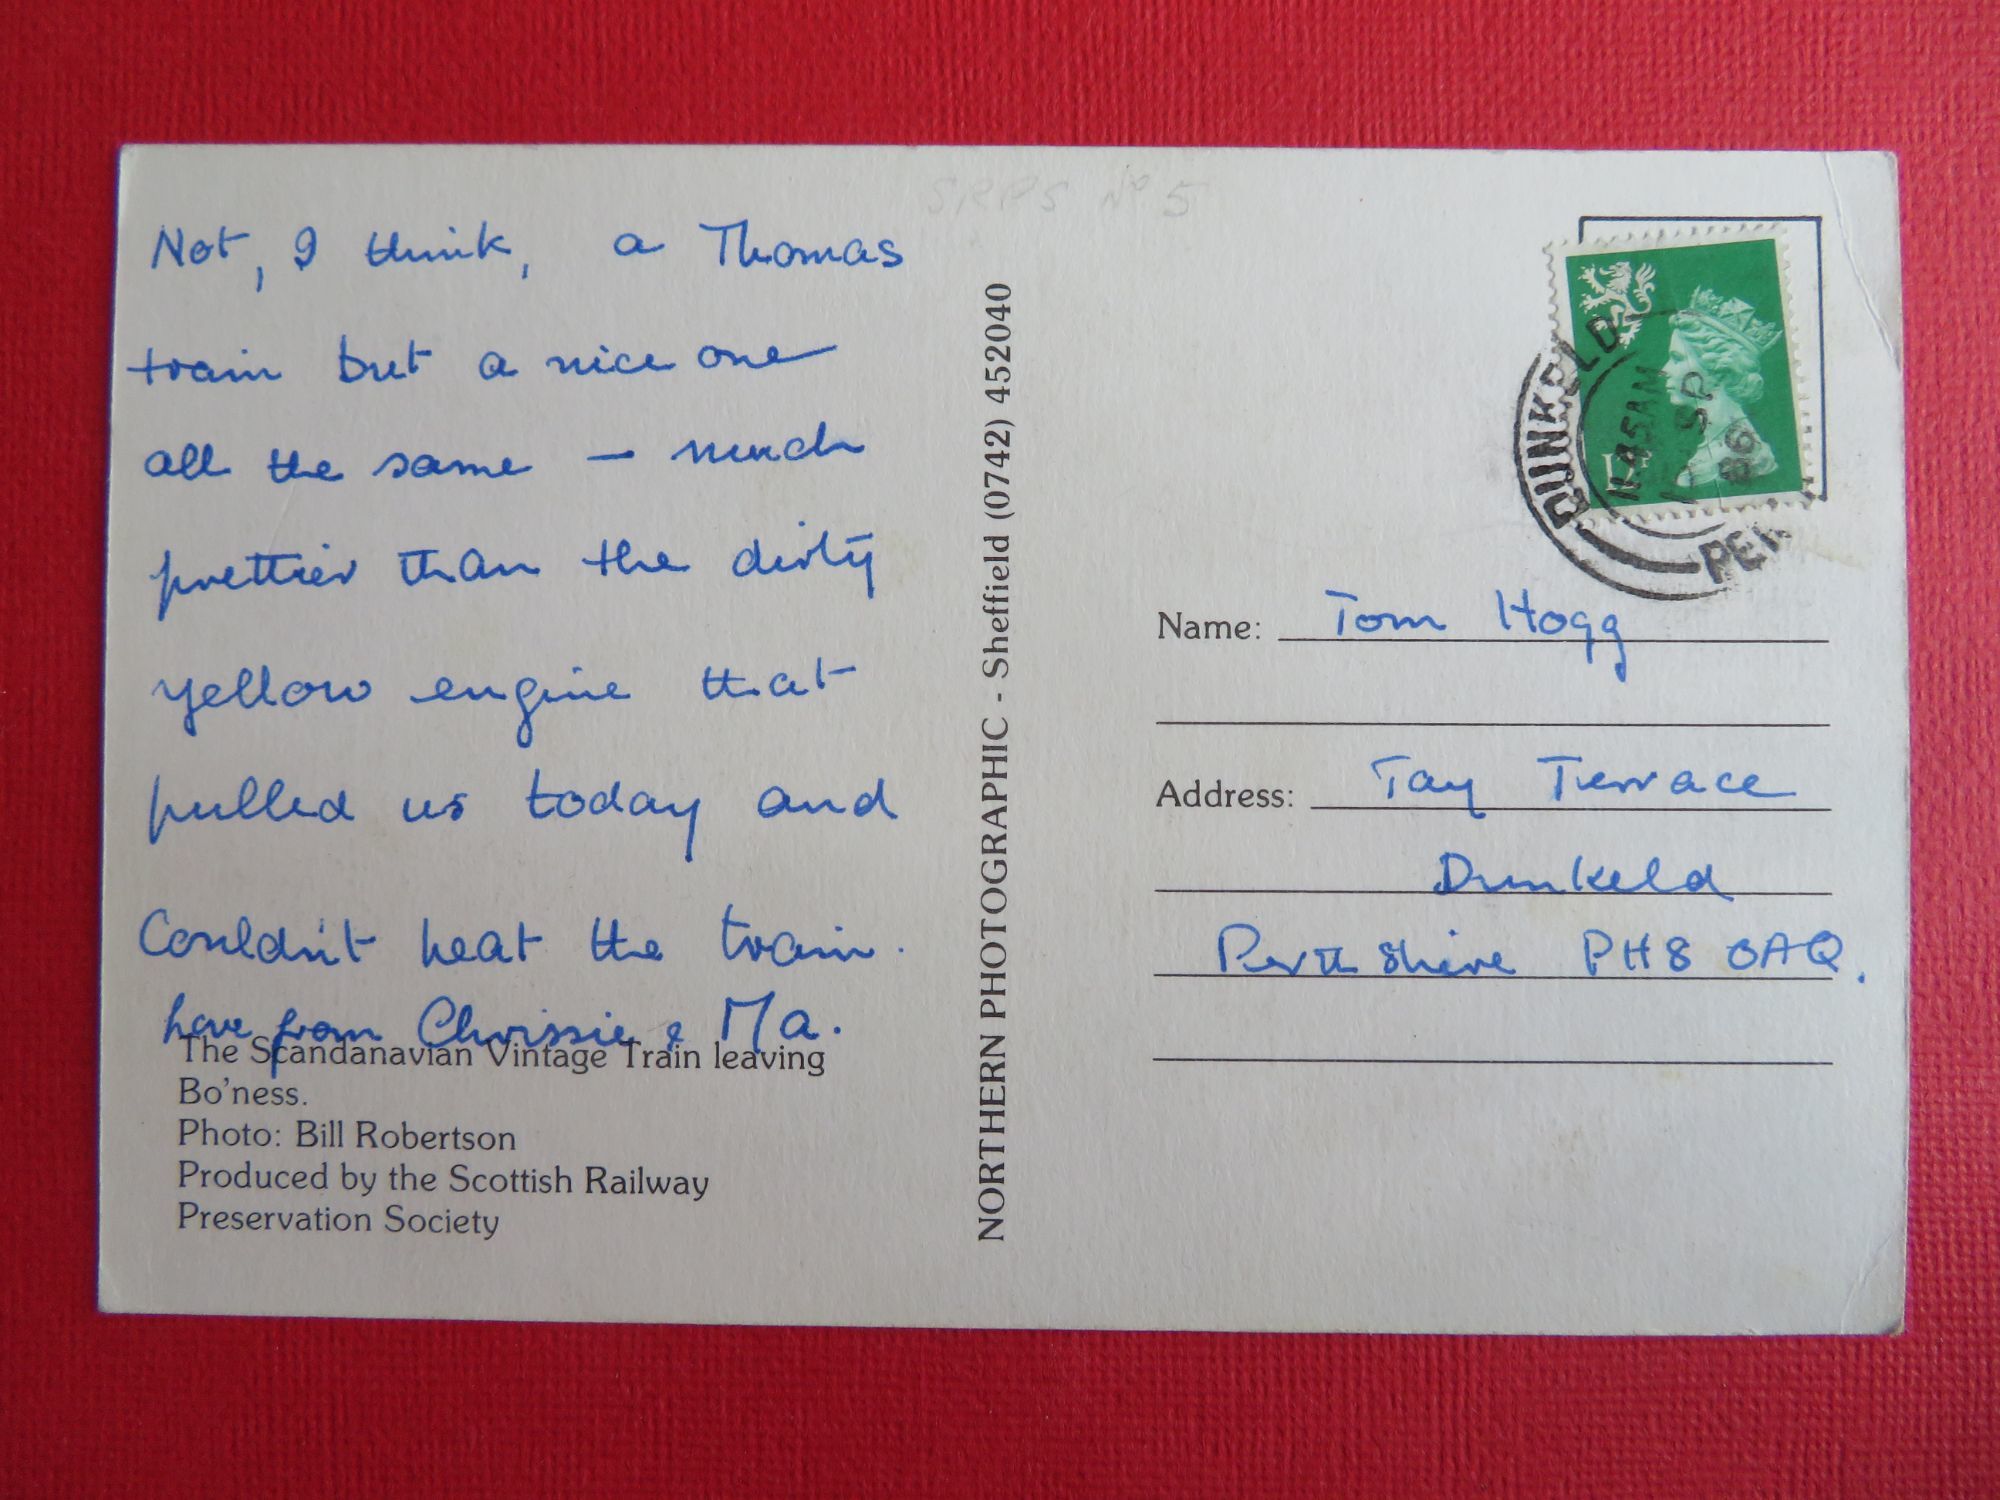 SRPS No 5
Not, I think, a Thomas
train but a nice one
all the same – much
prettier than the dirty
yellow engine that
pulled us today and
Couldn't heat the train.
love from Chrissie & Ma.
The Scandanavian Vintage Train leaving
Bo'ness.
Photo: Bill Robertson
Produced by the Scottish Railway
Preservation Society
NORTHERN PHOTOGRAPHIC - Sheffield (0742) 452040
DUNKELD
11.45AM
SP
86
Name: Tom Hogg
Address: Tay Terrace
Dunkeld
Perthshire PH8 0AQ.